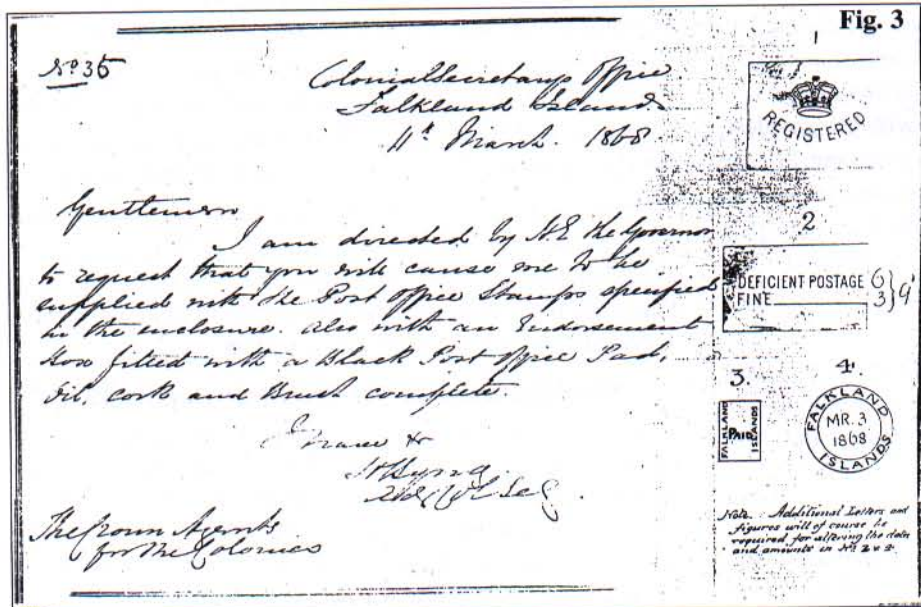 Fig. 3
No 35
Colonial Secretarys Office
Falkland Islands
11th March. 1868
Gentlemen
I am directed by H.E. the Governor
to request that you will cause me to be
supplied with the Post Office Stamps specified
in the enclosure. also with an Endorsement
Box fitted with a Black Post Office Pad,
Oil, cork and Brush complete.
I have &c
Col Sec
The Crown Agents
for the Colonies
1
REGISTERED
2
DEFICIENT POSTAGE 6
FINE 3 } 9
3.
FALKLAND
PAID
ISLANDS
4.
FALKLAND
MR. 3
1868
ISLANDS
Note. Additional Letters and
figures will of course be
required for altering the date
and amounts in No 2 & 4